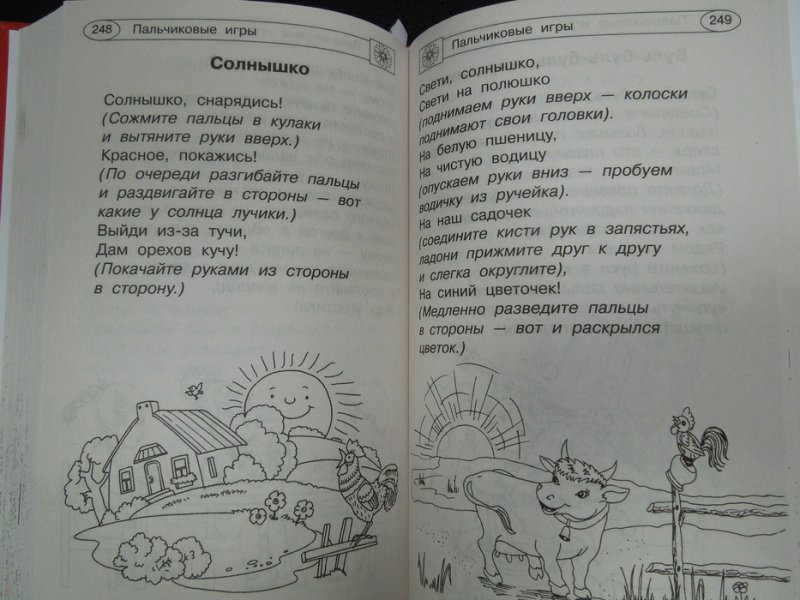 248 Пальчиковые игры
Солнышко
Солнышко, снарядись!
(Сожмите пальцы в кулаки
и вытяните руки вверх.)
Красное, покажись!
(По очереди разгибайте пальцы
и раздвигайте в стороны — вот
какие у солнца лучики.)
Выйди из-за тучи,
Дам орехов кучу!
(Покачайте руками из стороны
в сторону.)
Пальчиковые игры 249
Свети, солнышко,
Свети на полюшко
(поднимаем руки вверх — колоски
поднимают свои головки).
На белую пшеницу,
На чистую водицу
(опускаем руки вниз — пробуем
водичку из ручейка).
На наш садочек
(соедините кисти рук в запястьях,
ладони прижмите друг к другу
и слегка округлите),
На синий цветочек!
(Медленно разведите пальцы
в стороны — вот и раскрылся
цветок.)